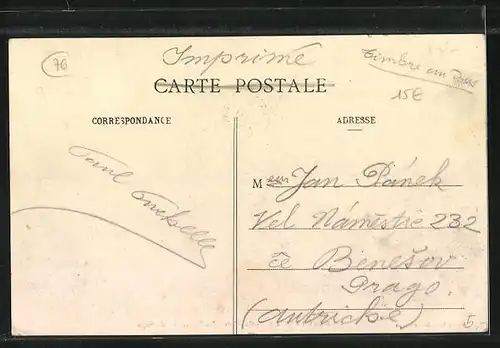 76
Imprimé
Timbre
15€
CARTE POSTALE
CORRESPONDANCE
ADRESSE
Meur Jan Pánek
Vel Náměstie 232
Paul
če Benešov
Prago.
(Autriche)
5